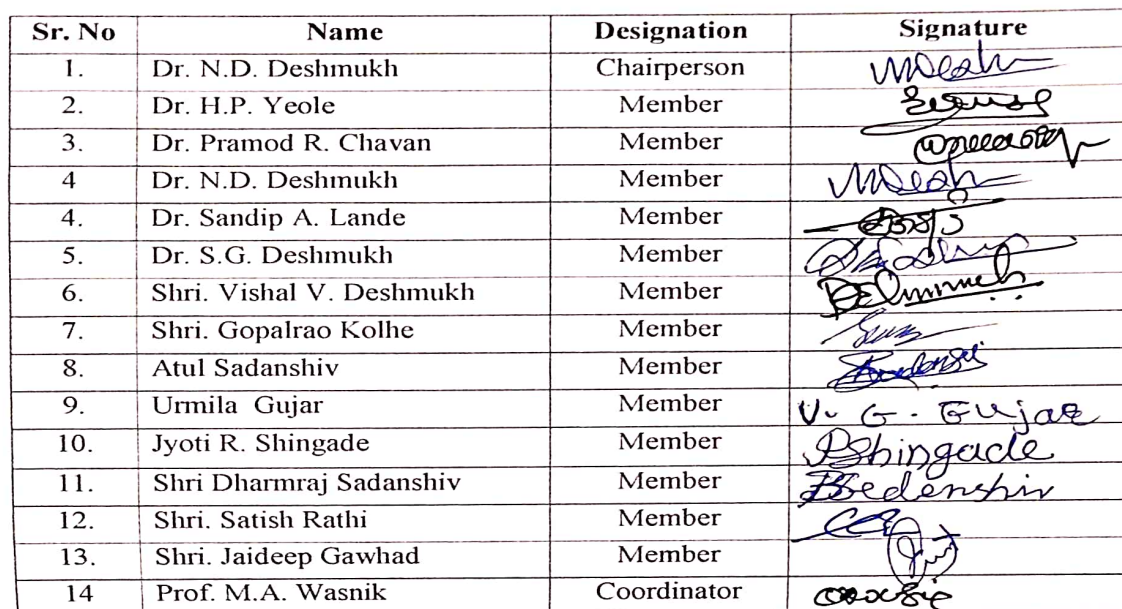 Sr. No Name Designation Signature
1. Dr. N.D. Deshmukh Chairperson
2. Dr. H.P. Yeole Member
3. Dr. Pramod R. Chavan Member
4 Dr. N.D. Deshmukh Member
4. Dr. Sandip A. Lande Member
5. Dr. S.G. Deshmukh Member
6. Shri. Vishal V. Deshmukh Member
7. Shri. Gopalrao Kolhe Member
8. Atul Sadanshiv Member
9. Urmila Gujar Member U. G. Gujar
10. Jyoti R. Shingade Member Shingade
11. Shri Dharmraj Sadanshiv Member
12. Shri. Satish Rathi Member
13. Shri. Jaideep Gawhad Member
14 Prof. M.A. Wasnik Coordinator